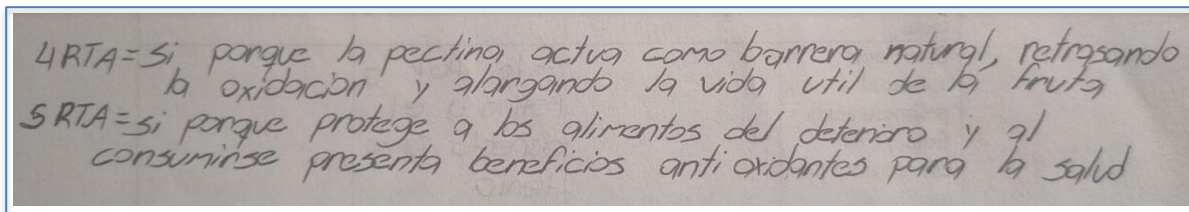 4 RTA = Si, porque la pectina, actua como barrera natural, retrasando
la oxidación y alargando la vida util de la fruta
5 RTA = si porque protege a los alimentos del deterioro y al
consumirse presenta beneficios antioxidantes para la salud